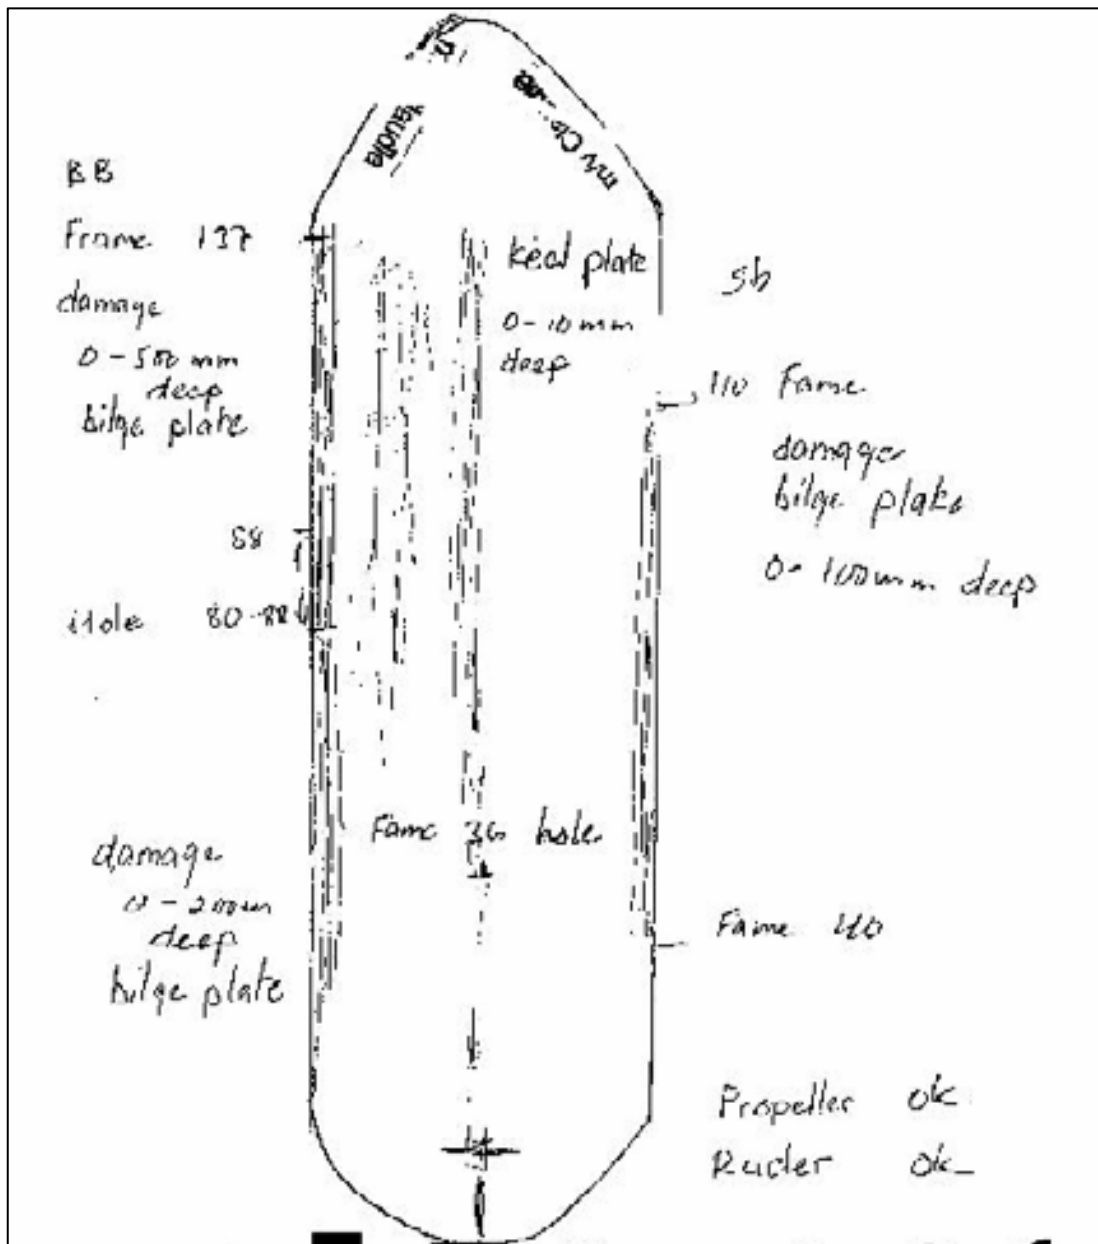 BB
Frame 137
damage
0-500 mm
deep
bilge plate
88
Hole 80-88
damage
0-200mm
deep
bilge plate
mv Cl
laudia
keal plate
0-10 mm
deep
Fame 36 hole
sb
110 Fame
damage
bilge plate
0-100mm deep
Fame 40
Propeller ok
Ruder ok